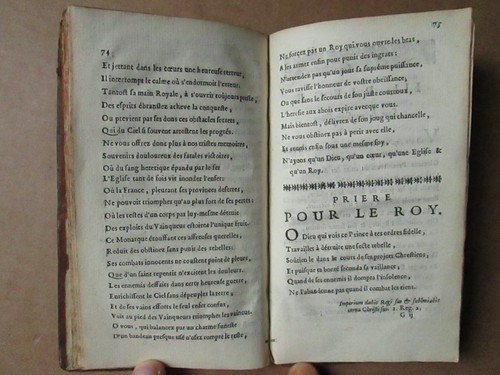 74
Et jettant dans les cœurs une heureuse terreur,
Il interrompt le calme où s'endormoit l'erreur.
Tantost sa main Royale, à s'ouvrir toujours
Des esprits ébranslez acheve la conqueste,
Ou previent par ses dons ces obstacles secrets,
Qui du Ciel si souvent arrestent les progrés.
Ne vous offrez donc plus à nos tristes memoires,
Souvenirs douloureux des fatales victoires,
Où du sang heretique épandu par le fer
L'Eglise tant de fois vit inonder l'enfer:
Où la France, pleurant ses provinces desertes,
Ne pouvoit triompher qu'au plus fort de ses pertes:
Où les restes d'un corps par luy-mesme détruit
Des exploits du Vainqueur estoient l'unique fruit.
Ce Monarque étouffant ces affreuses querelles,
Reduit des obstinez sans punir des rebelles:
Ses combats innocens ne coustent point de pleurs,
Que d'un saint repentir n'excitent les douleurs.
Les dépouilles enfin d'une sanglante guerre
Enrichissent le Ciel sans dépeupler la terre,
Et de ses vaines efforts le seul reste confus
Voit au pied des Vainqueurs triompher les vaincus.
O vous, qui balancez par un charme funeste
D'un bandeau presque usé n'osez rompre le reste,
75
Ne forcez pas un Roy qui vous ouvre les bras,
A les armer enfin pour punir des ingrats:
N'attendez pas qu'un jour sa suprême puissance,
Vous ravisse l'honneur de vostre obeïssance;
Ou que sans le secours de son juste courroux,
L'heresie aux abois expire avecque vous.
Mais bientost, délivrez de son joug qui chancelle,
Ne vous obstinez pas à perir avec elle,
Et unis enfin sous une mesme Foy,
N'ayons qu'un Dieu, qu'un cœur, qu'une Eglise &
qu'un Roy.
PRIERE
POUR LE ROY.
O Dieu qui vois ce Prince à tes ordres fidelle,
Travailler à détruire une secte rebelle,
Soûtien le dans le cours de ses projets Chrestiens,
Et puisque ta bonté seconda sa vaillance,
Quand de ses ennemis il dompta l'insolence,
Ne l'abandonne pas quand il combat les siens.
Imperium dabit Regi suo & sublimabit
cornu Christi sui. 1. Reg. 2.
G ij